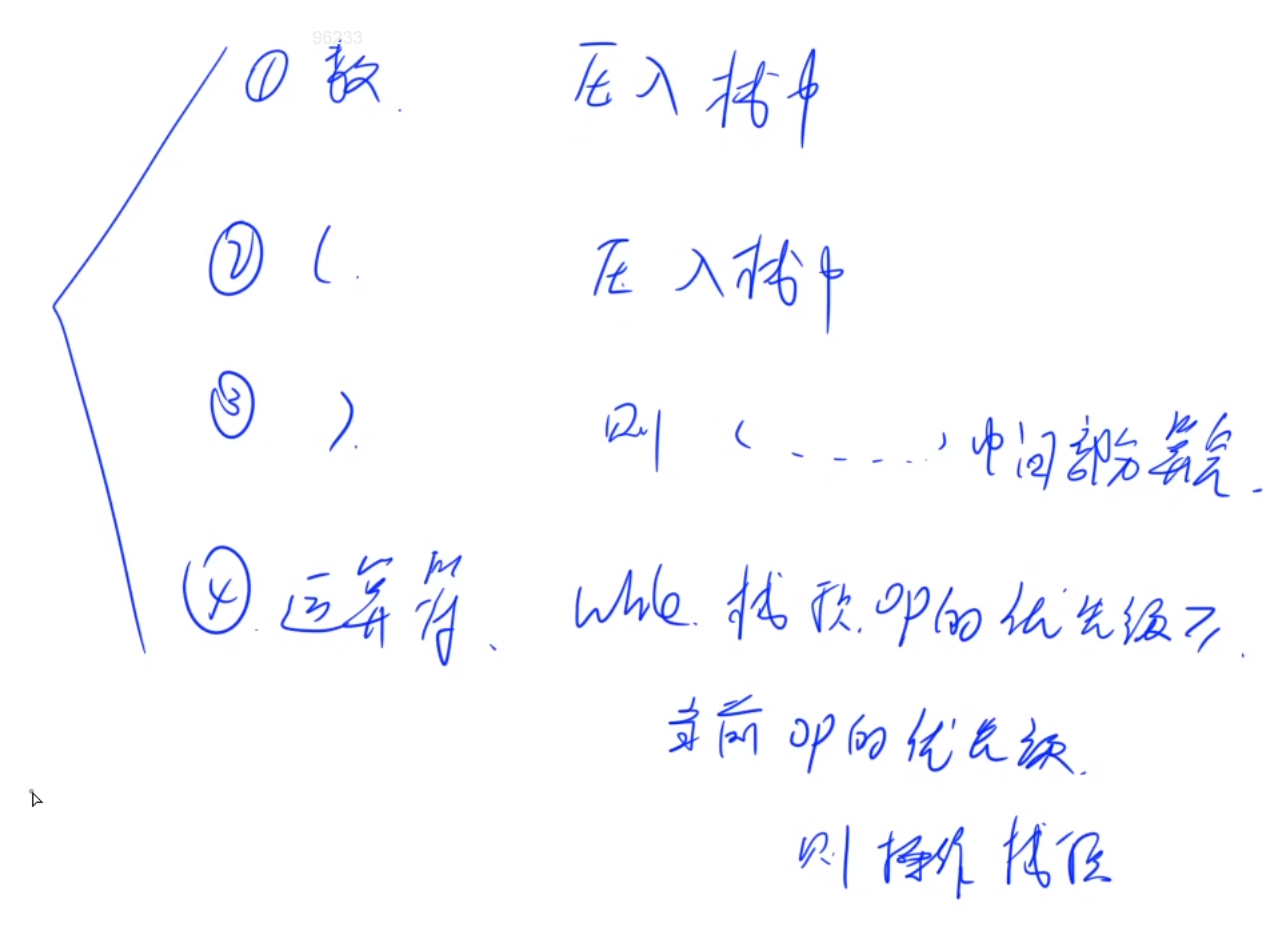 96233
① 数. 压入栈中
② (. 压入栈中
③ ). 则 ( ..... ) 中间部分算完.
④. 运算符、 while. 栈顶.op的优先级≥.
当前op的优先级.
则操作栈顶